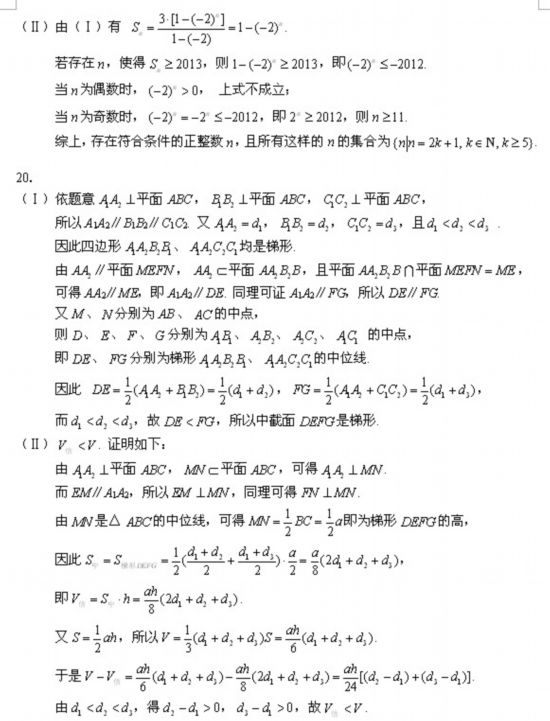 (Ⅱ) 由(Ⅰ)有 Sₙ = 3·[1−(−2)ⁿ] / 1−(−2) = 1−(−2)ⁿ.
若存在n,使得Sₙ ≥ 2013,则1−(−2)ⁿ ≥ 2013,即(−2)ⁿ ≤ −2012.
当n为偶数时,(−2)ⁿ > 0, 上式不成立;
当n为奇数时,(−2)ⁿ = −2ⁿ ≤ −2012,即2ⁿ ≥ 2012,则n ≥ 11.
综上,存在符合条件的正整数n,且所有这样的n的集合为{n|n = 2k+1, k∈N, k ≥ 5}.
20.
(Ⅰ) 依题意A₁A₂⊥平面ABC, B₁B₂⊥平面ABC, C₁C₂⊥平面ABC,
所以A₁A₂∥B₁B₂∥C₁C₂. 又A₁A₂ = d₁, B₁B₂ = d₂, C₁C₂ = d₃,且d₁ < d₂ < d₃ .
因此四边形A₁A₂B₂B₁、A₁A₂C₂C₁均是梯形.
由AA₂∥平面MEFN, AA₂⊂平面AA₂B₂B,且平面AA₂B₂B∩平面MEFN = ME,
可得AA₂∥ME,即A₁A₂∥DE. 同理可证A₁A₂∥FG,所以DE∥FG.
又M、N分别为AB、AC的中点,
则D、E、F、G分别为A₁B₁、A₂B₂、A₂C₂、A₁C₁ 的中点,
即DE、FG分别为梯形A₁A₂B₂B₁、A₁A₂C₂C₁的中位线.
因此 DE = 1/2(A₁A₂ + B₁B₂) = 1/2(d₁ + d₂), FG = 1/2(A₁A₂ + C₁C₂) = 1/2(d₁ + d₃),
而d₁ < d₂ < d₃,故DE < FG,所以中截面DEFG是梯形.
(Ⅱ) V估 < V. 证明如下:
由A₁A₂⊥平面ABC, MN⊂平面ABC,可得A₁A₂⊥MN.
而EM∥A₁A₂,所以EM⊥MN,同理可得FN⊥MN.
由MN是△ABC的中位线,可得MN = 1/2 BC = 1/2 a即为梯形DEFG的高,
因此S中 = S梯形DEFG = 1/2(d₁ + d₂/2 + d₁ + d₃/2)·a/2 = a/8(2d₁ + d₂ + d₃),
即V估 = S中·h = ah/8(2d₁ + d₂ + d₃).
又S = 1/2 ah,所以V = 1/3(d₁ + d₂ + d₃)S = ah/6(d₁ + d₂ + d₃).
于是V − V估 = ah/6(d₁ + d₂ + d₃) − ah/8(2d₁ + d₂ + d₃) = ah/24[(d₂ − d₁) + (d₃ − d₁)].
由d₁ < d₂ < d₃,得d₂ − d₁ > 0, d₃ − d₁ > 0,故V估 < V.